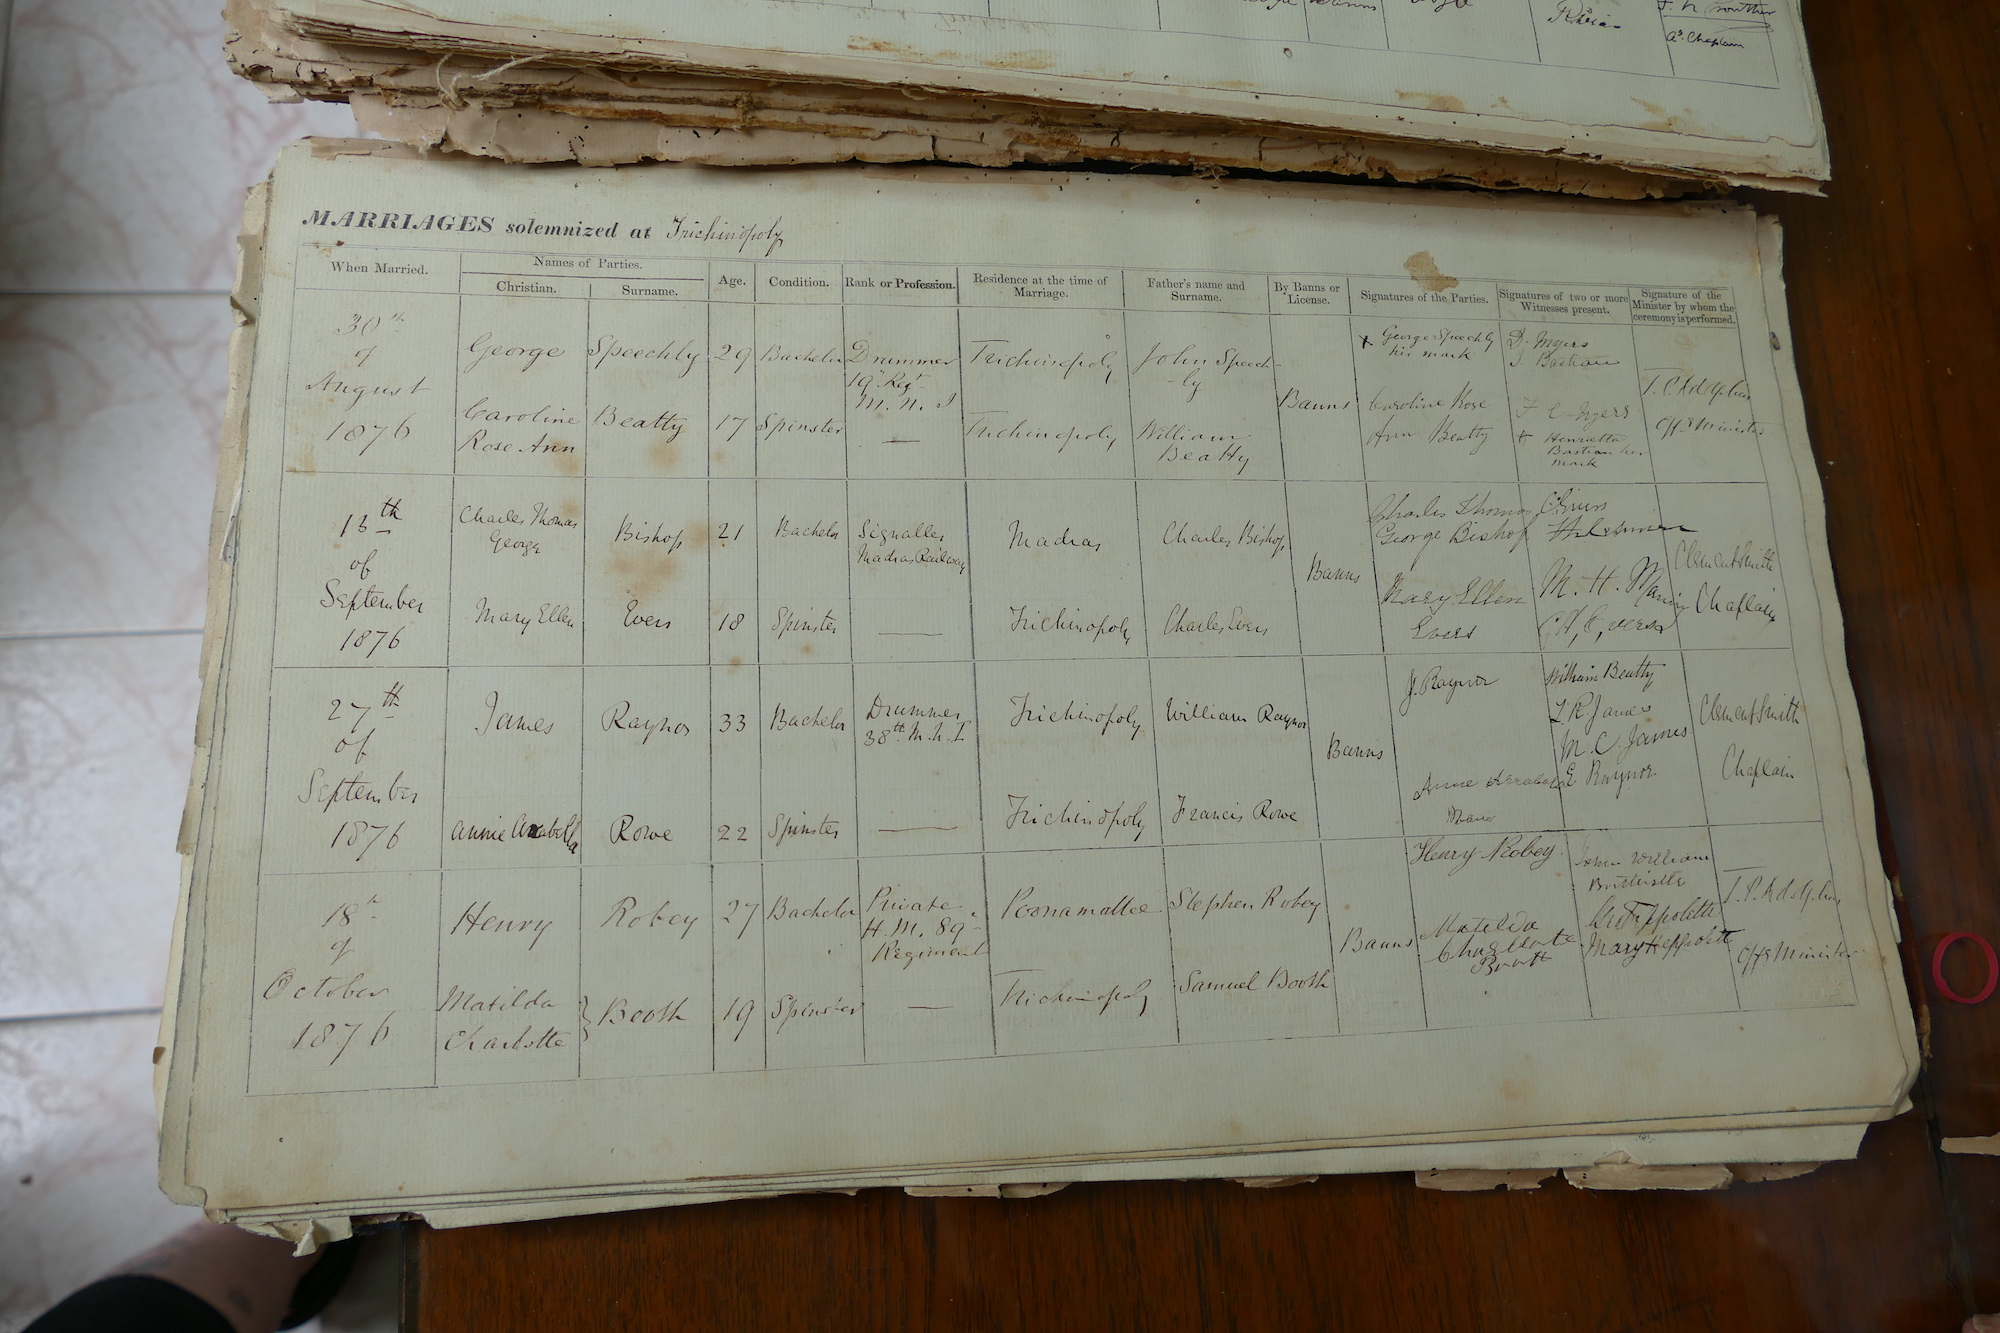 Banns
J. N. Crowther
As. Chaplain
MARRIAGES solemnized at Trichinopoly
When Married.
Names of Parties.
Christian.
Surname.
Age.
Condition.
Rank or Profession.
Residence at the time of
Marriage.
Father's name and
Surname.
By Banns or
License.
Signatures of the Parties.
Signatures of two or more
Witnesses present.
Signature of the
Minister by whom the
ceremony is performed.
30th
of
August
1876
George
Speechly
29
Bachelor
Drummer
19th Regt
M. N. I
Trichinopoly
John Speech-
-ly
Banns
x George Speechly
his mark
D. Myers
J. Bastian
Caroline
Rose Ann
Beatty
17
Spinster
—
Trichinopoly
William
Beatty
Caroline Rose
Ann Beatty
F C Myers
x Henrietta
Bastian her
mark
Offg Minister
13th
of
September
1876
Charles Thomas
George
Bishop
21
Bachelor
Signaller
Madras Railway
Madras
Charles Bishop
Banns
Charles Thomas
George Bishop
Mary Ellen
Evers
18
Spinster
—
Trichinopoly
Charles Evers
Mary Ellen
Evers
M. H.
Clement Smith
Chaplain
27th
of
September
1876
James
Raynor
33
Bachelor
Drummer
38th M. N. I
Trichinopoly
William Raynor
Banns
J. Raynor
William Beatty
J. R James
M. C. James
E. Raynor
Annie Arabella
Rowe
22
Spinster
—
Trichinopoly
Francis Rowe
Anne Arabella
Rowe
Clement Smith
Chaplain
18th
of
October
1876
Henry
Robey
27
Bachelor
Private
H. M. 89
Regiment
Poonamallee
Stephen Robey
Banns
Henry Robey
John William
Matilda
Charlotte
} Booth
19
Spinster
—
Trichinopoly
Samuel Booth
Matilda
Charlotte
Booth
Mary Heppolette
Offg Minister